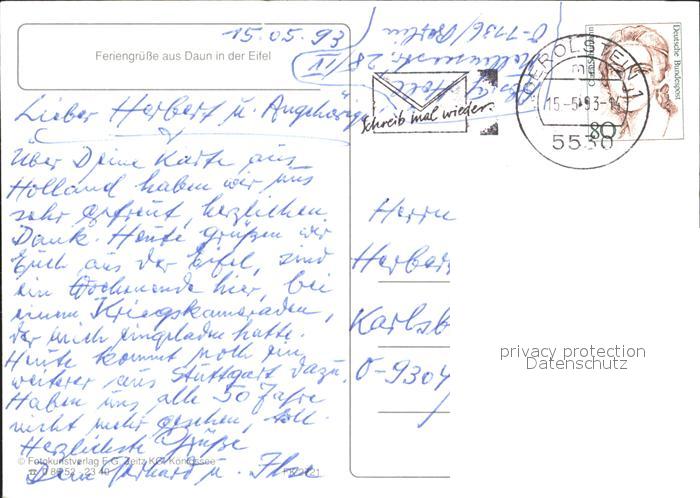 15.05.93
Feriengrüße aus Daun in der Eifel
Lieber Herbert u. Angehörige
Über Deine Karte aus
Holland haben wir uns
sehr gefreut, herzlichen
Dank. Heute grüßen wir
Euch aus der Eifel, sind
ein Wochenende hier, bei
einem Kriegskameraden,
der mich eingeladen hatte.
Heute kommt noch ein
weiterer aus Stuttgart dazu.
Haben uns alle 50 Jahre
nicht mehr gesehen, toll.
Herzlichste Grüße
Dein Gerhard u. Ilse
© Fotokunstverlag F.G. Zeitz KG, Königssee
O-1136/Berlin
28/IV
Schreib mal wieder.
GEROLSTEIN 1
15.-5.93-14
5530
Deutsche Bundespost
Clara Schumann
80
Herrn
Herber
Karlsb
O-9304
privacy protection
Datenschutz